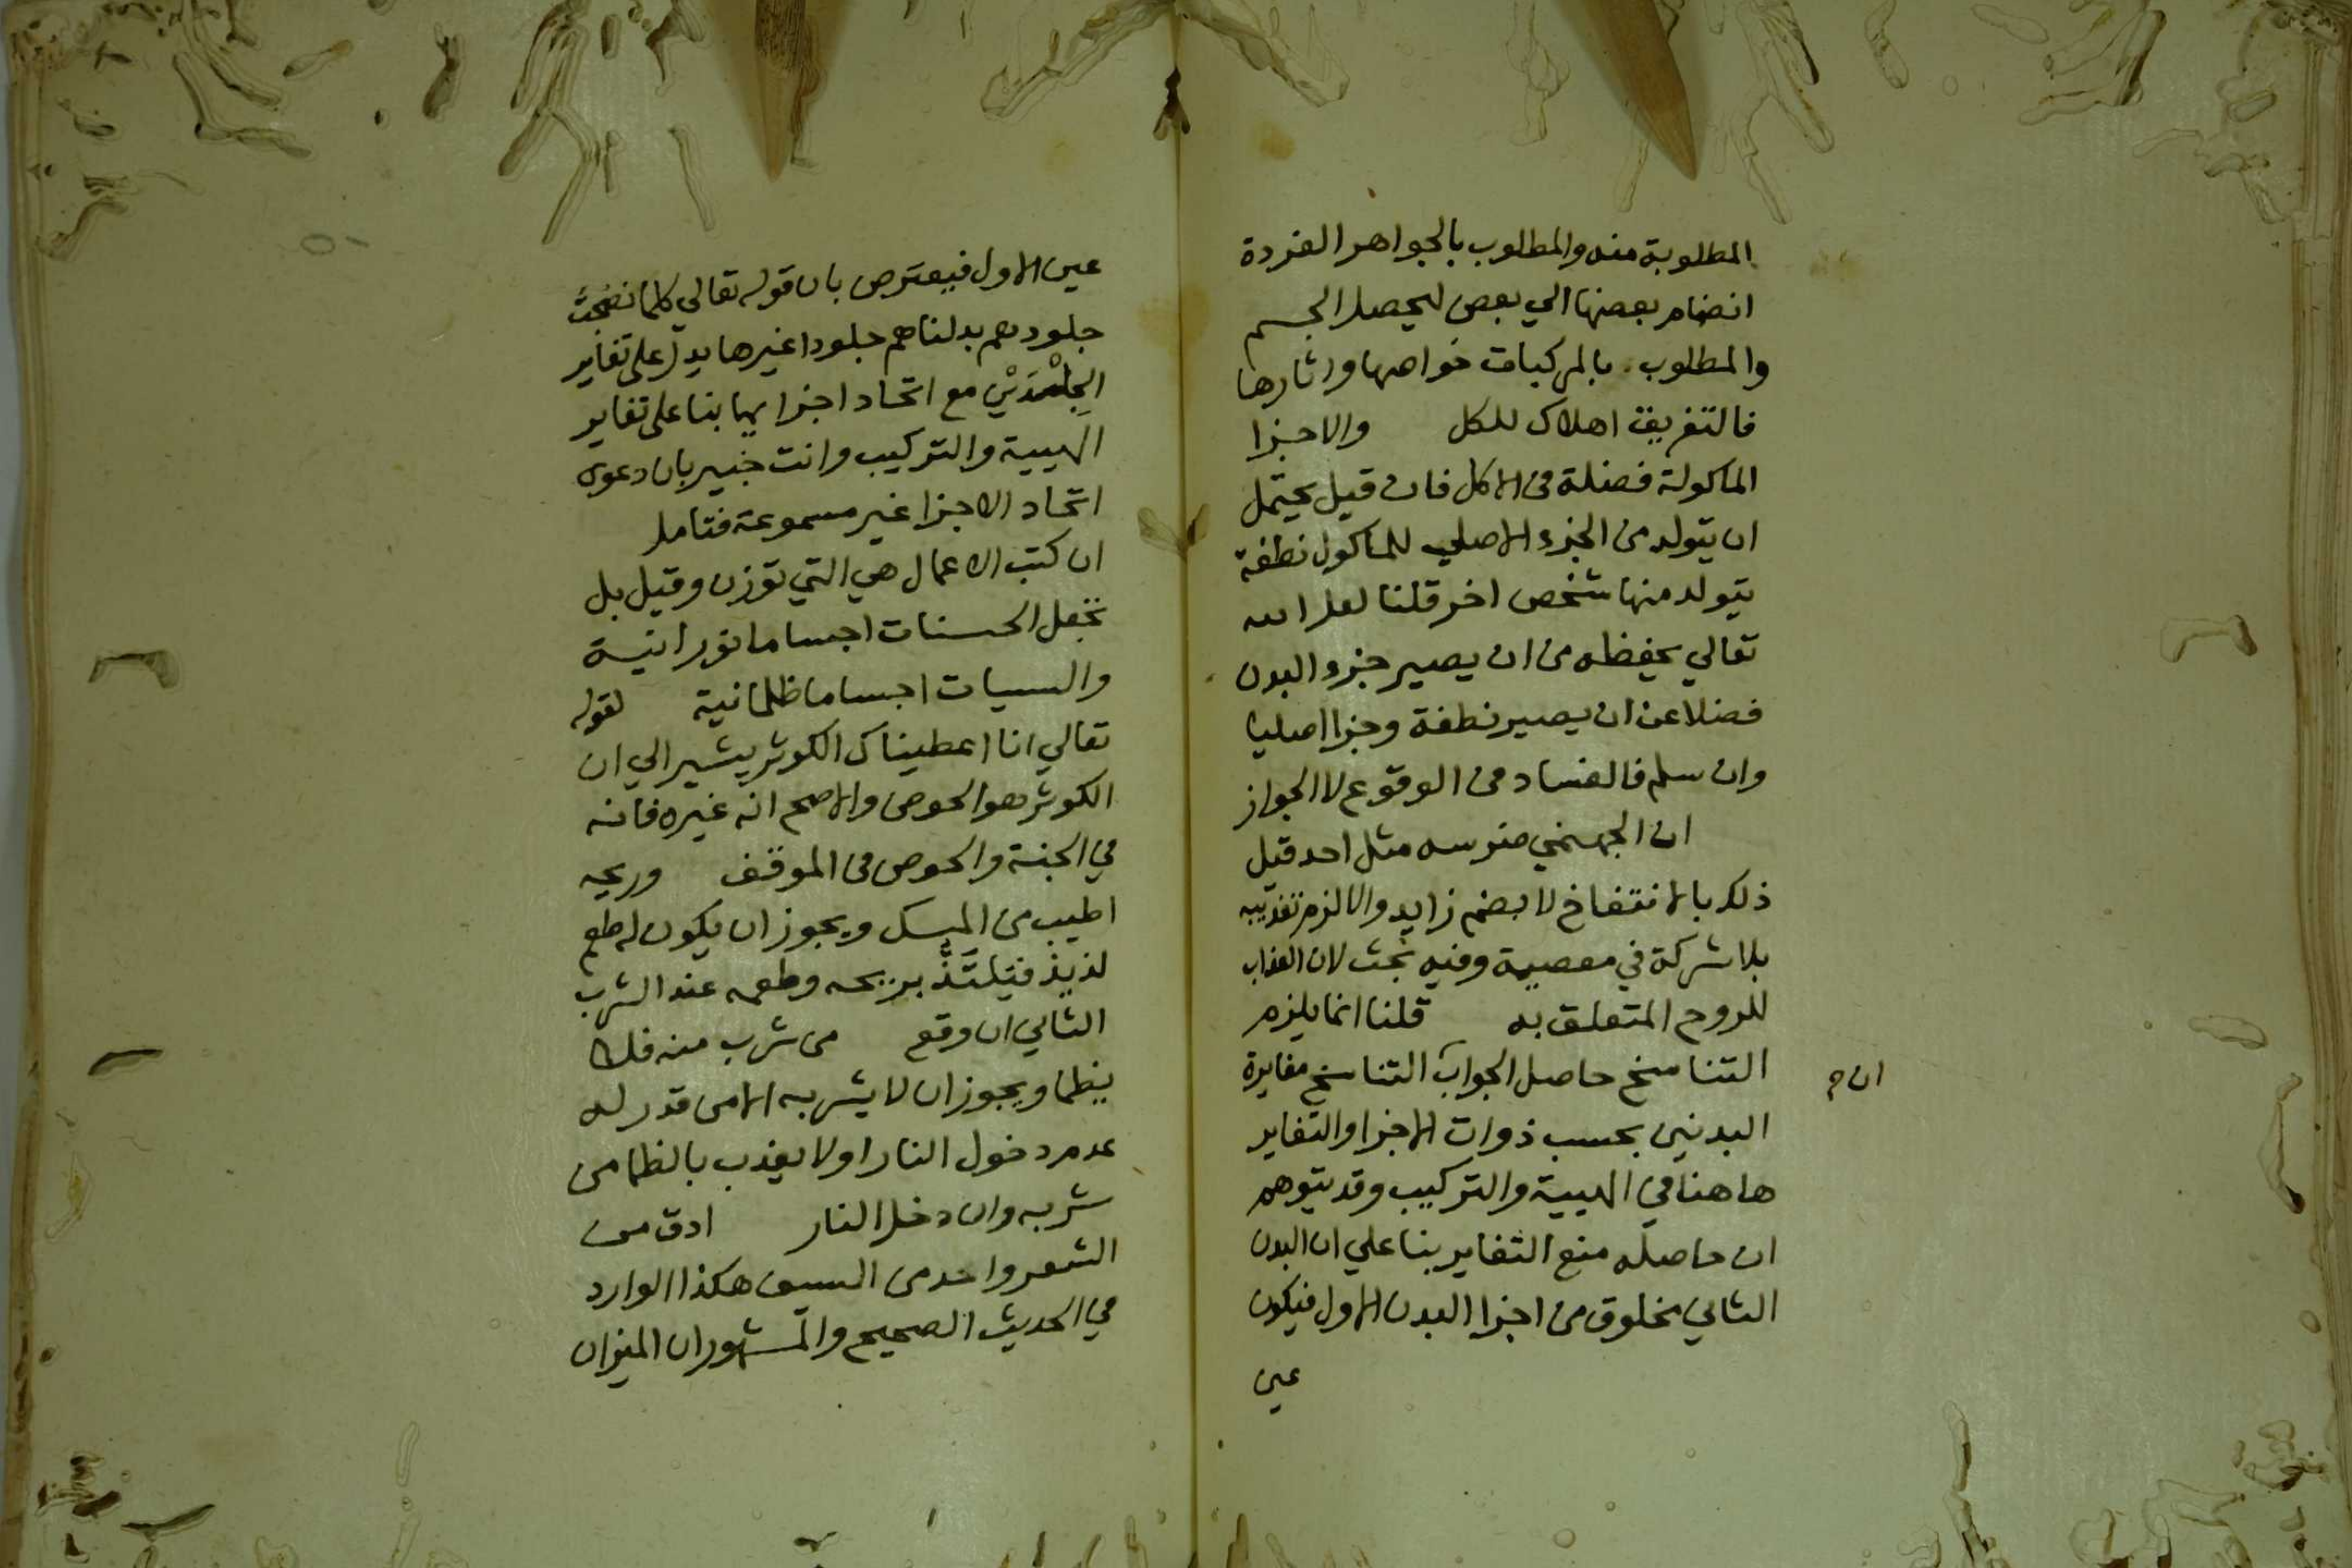 المطلوبة منه والمطلوب بالجواهر الفردة
انضمام بعضها الي بعض ليحصل الجسم
والمطلوب بالمركبات خواصها واثارها
فالتفريق اهلاك للكل والاجزا
الماكولة فضلة في الاكل فان قيل يحتمل
ان يتولد من الجزء الاصلي للماكول نطفة
يتولد منها شخص اخر قلنا لعل الله
تعالي يحفظه من ان يصير جزء البدن
فضلا عن ان يصير نطفة وجزا اصليا
وان سلم فالفساد في الوقوع لا الجواز
ان الجهنمي ضرسه مثل احد قيل
ذلك بالانتفاخ لا بضم زايد والا لزم تعذيبه
بلا شركة في معصية وفيه بحث لان العذاب
للروح المتعلق به قلنا انما يلزم
التناسخ حاصل الجواب التناسخ مغايرة
ان م
البدنين بحسب ذوات الاجزا والتغاير
هاهنا في الهيية والتركيب وقد يتوهم
ان حاصله منع التغاير بنا علي ان البدن
الثاني مخلوق من اجزا البدن الاول فيكون
عين
عين الاول فيعترض بان قوله تعالي كلما نضجت
جلودهم بدلناهم جلودا غيرها يدل علي تغاير
الجِلْدَيْن مع اتحاد اجزايهما بنا علي تغاير
الهيية والتركيب وانت خبير بان دعوي
اتحاد الاجزا غير مسموعة فتامل
ان كتب الاعمال هي التي توزن وقيل بل
تجعل الحسنات اجساما نورانية
والسييات اجساما ظلمانية لقوله
تعالي انا اعطيناك الكوثر يشير الي ان
الكوثر هو الحوض والاصح انه غيره فانه
في الجنة والحوض في الموقف وريحه
اطيب من المسك ويجوز ان يكون له طعم
لذيذ فيلتَذّ بريحه وطعمه عند الشرب
الثاني ان وقع من شرب منه فلا
يظما ويجوز ان لا يشربه الا من قدر له
عدم دخول النار او لا يعذب بالظما من
شربه وان دخل النار ادق من
الشعر واحد من السيف هكذا الوارد
في الحديث الصحيح والمشهور ان الميزان